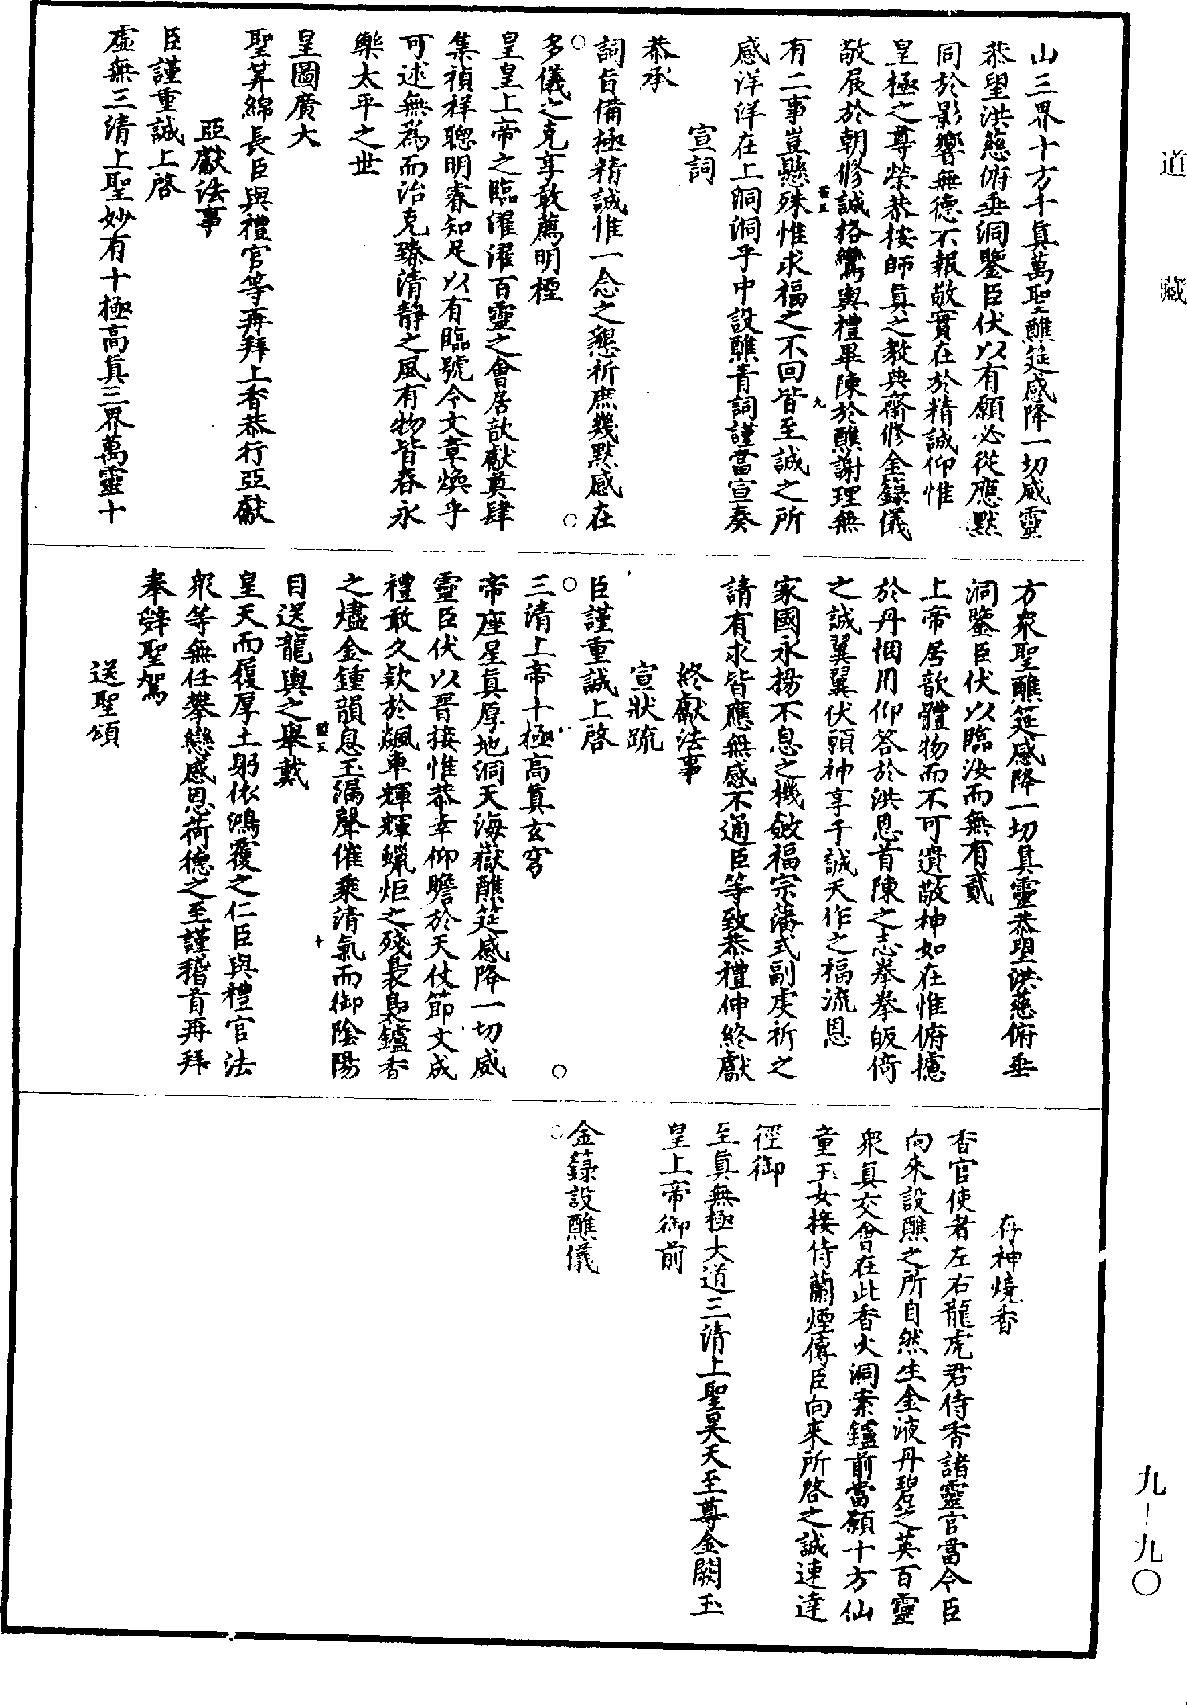 道藏
山三界十方千眞萬聖醮筵感降一切威靈
恭望洪慈俯垂洞鑒臣伏以有願必從應黙
同於影響無德不報敬實在於精誠仰惟
皇極之尊榮恭按師眞之教典齋修金籙儀
敬展於朝修誠格鸞輿禮畢陳於醮謝理無
有二事豈懸殊惟求福之不回皆至誠之所
感洋洋在上洞洞乎中設醮青詞謹當宣奏
宣詞
恭承
詞旨備極精誠惟一念之懇祈庶幾黙感在
多儀之克享敢薦明禋
皇皇上帝之臨濯濯百靈之會居歆獻奠肆
集禎祥聰明睿知足以有臨號令文章煥乎
可述無爲而治克臻清靜之風有物皆春永
樂太平之世
皇圖廣大
聖筭綿長臣與禮官等再拜上香恭行亞獻
亞獻法事
臣謹重誠上啓
虛無三清上聖妙有十極高眞三界萬靈十
方衆聖醮筵感降一切眞靈恭望洪慈俯垂
洞鑒臣伏以臨汝而無有貳
上帝居歆體物而不可遺敬神如在惟俯摅
於丹悃用仰答於洪恩首陳之志拳拳皈倚
之誠翼翼伏願神享于誠天作之福流恩
家國永揚不息之機斂福宗藩式副虔祈之
請有求皆應無感不通臣等致恭禮伸終獻
終獻法事
宣狀疏
臣謹重誠上啓
三清上帝十極高眞玄穹
帝座星眞厚地洞天海嶽醮筵感降一切威
靈臣伏以晉接惟恭幸仰瞻於天仗節文成
禮敢久欵於飆車輝輝蠟炬之殘裊裊鑪香
之燼金鍾韻息玉漏聲催乘清氣而御陰陽
目送龍輿之舉戴
皇天而履厚土躬依鴻覆之仁臣與禮官法
衆等無任攀戀感恩荷德之至謹稽首再拜
奉辭聖駕
送聖頌
存神燒香
香官使者左右龍虎君侍香諸靈官當令臣
向來設醮之所自然生金液丹碧之英百靈
衆眞交會在此香火洞案鑪前當願十方仙
童玉女接侍蘭煙傳臣向來所啓之誠速達
徑御
至眞無極大道三清上聖昊天至尊金闕玉
皇上帝御前
金籙設醮儀
九｜九〇